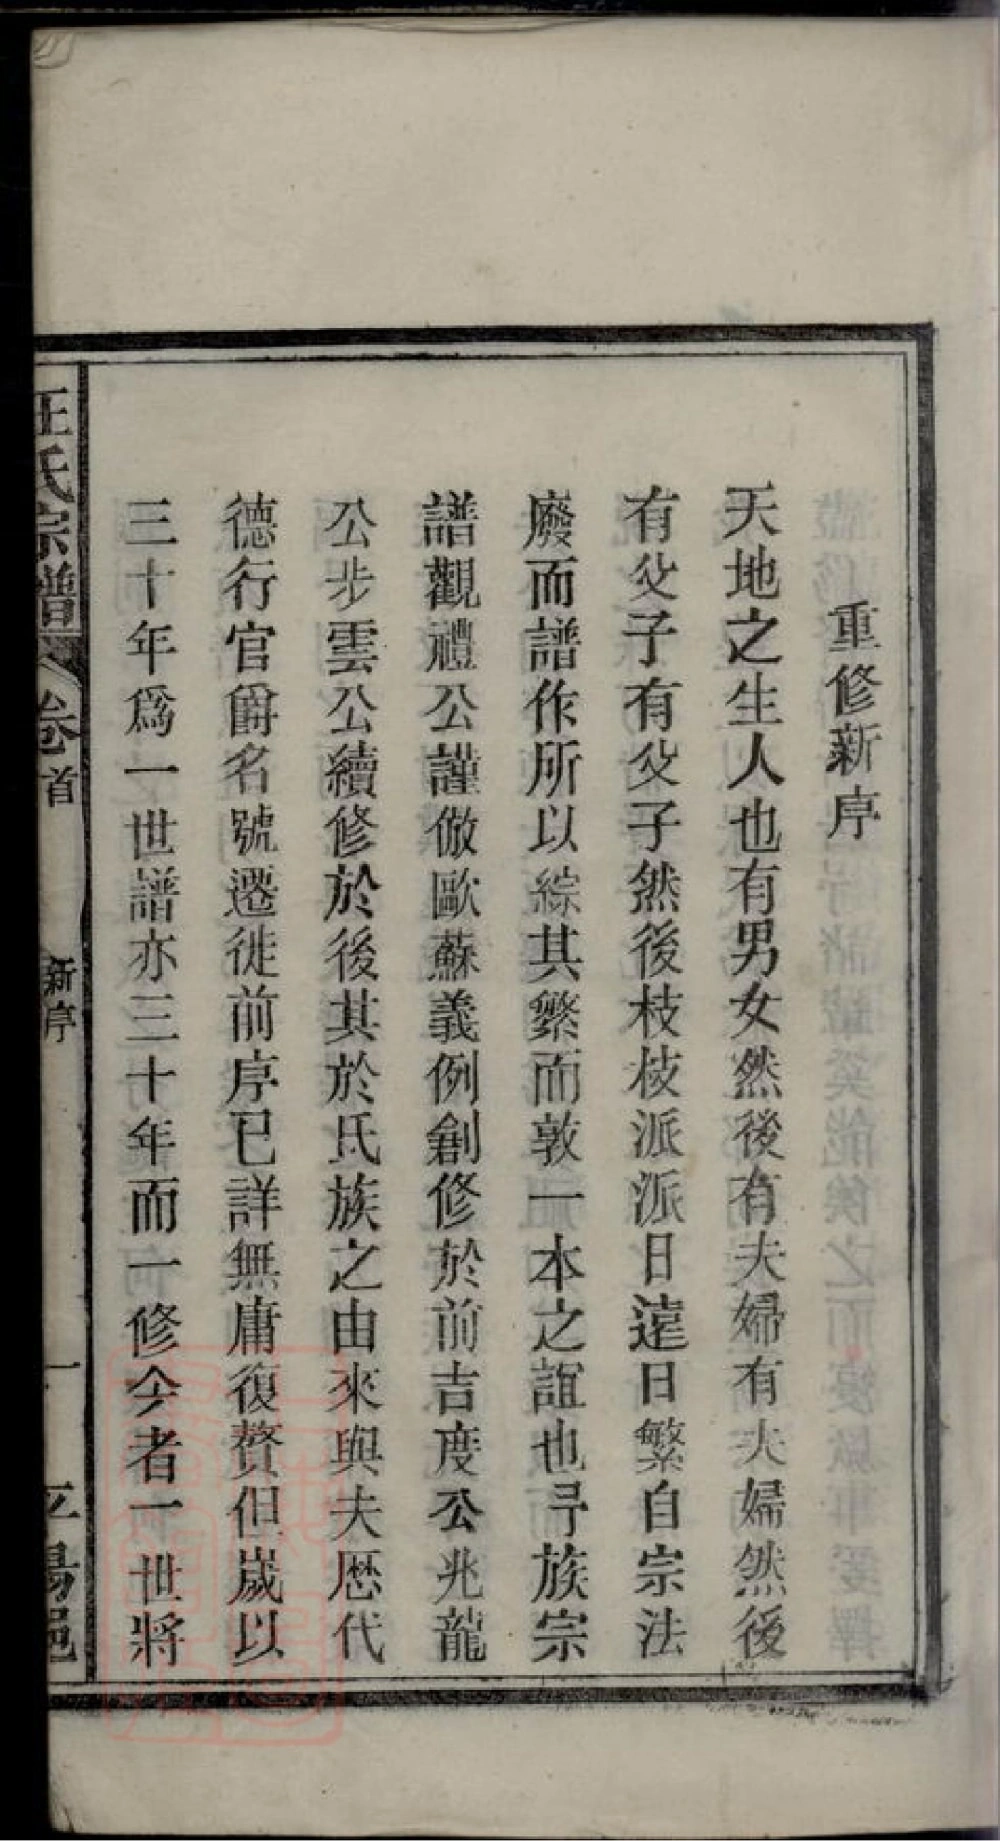 重修新序
天地之生人也有男女然後有夫婦有夫婦然後
有父子有父子然後枝枝派派日遠日繁自宗法
廢而譜作所以綜其繁而敦一本之誼也予族宗
譜觀禮公謹倣歐蘇義例創修於前吉度公兆龍
公步雲公續修於後其於氏族之由來與夫歷代
德行官爵名號遷徙前序已詳無庸復贅但歲以
三十年爲一世譜亦三十年而一修今者一世將
汪氏宗譜 卷首 新序 一